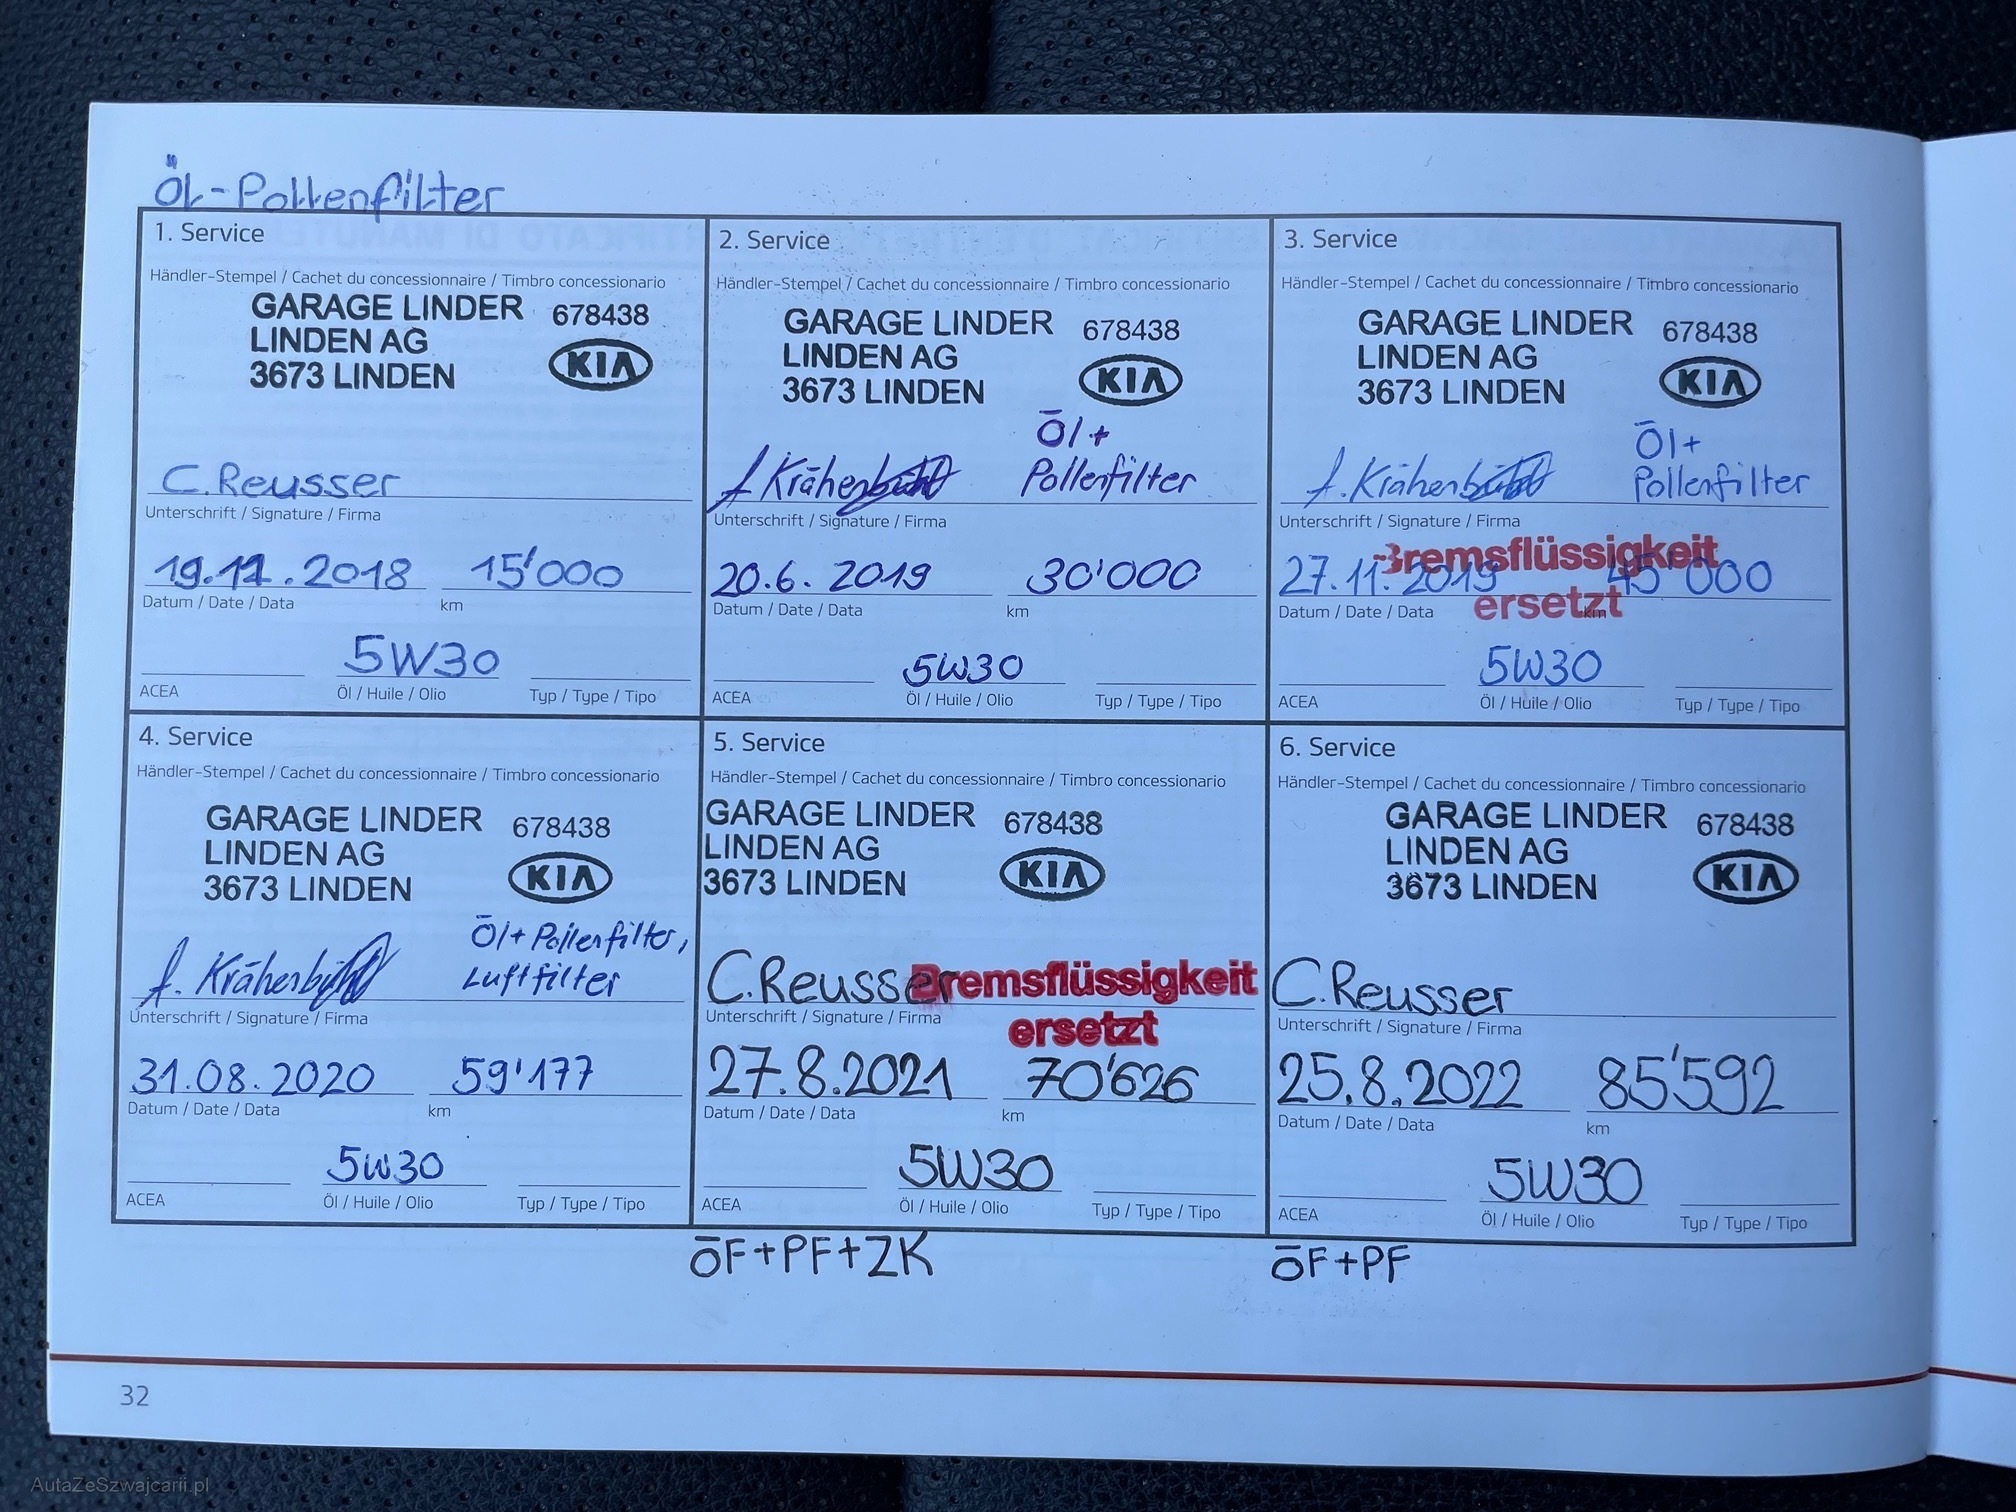 ÖL-Pollenfilter
1. Service
Händler-Stempel / Cachet du concessionnaire / Timbro concessionario
GARAGE LINDER 678438
LINDEN AG
3673 LINDEN
KIA
C.Reusser
Unterschrift / Signature / Firma
19.11.2018 15'000
Datum / Date / Data km
5W30
ACEA Öl / Huile / Olio Typ / Type / Tipo
2. Service
Händler-Stempel / Cachet du concessionnaire / Timbro concessionario
GARAGE LINDER 678438
LINDEN AG
3673 LINDEN
KIA
Öl+
Pollenfilter
f. Krähenbühl
Unterschrift / Signature / Firma
20.6.2019 30'000
Datum / Date / Data km
5W30
ACEA Öl / Huile / Olio Typ / Type / Tipo
3. Service
Händler-Stempel / Cachet du concessionnaire / Timbro concessionario
GARAGE LINDER 678438
LINDEN AG
3673 LINDEN
KIA
Öl+
Pollenfilter
f. Krähenbühl
Unterschrift / Signature / Firma
Bremsflüssigkeit
ersetzt
27.11.2019 45'000
Datum / Date / Data km
5W30
ACEA Öl / Huile / Olio Typ / Type / Tipo
4. Service
Händler-Stempel / Cachet du concessionnaire / Timbro concessionario
GARAGE LINDER 678438
LINDEN AG
3673 LINDEN
KIA
Öl+Pollenfilter,
Luftfilter
f. Krähenbühl
Unterschrift / Signature / Firma
31.08.2020 59'177
Datum / Date / Data km
5W30
ACEA Öl / Huile / Olio Typ / Type / Tipo
5. Service
Händler-Stempel / Cachet du concessionnaire / Timbro concessionario
GARAGE LINDER 678438
LINDEN AG
3673 LINDEN
KIA
C.Reusser
Bremsflüssigkeit
ersetzt
Unterschrift / Signature / Firma
27.8.2021 70'626
Datum / Date / Data km
5W30
ACEA Öl / Huile / Olio Typ / Type / Tipo
ÖF+PF+ZK
6. Service
Händler-Stempel / Cachet du concessionnaire / Timbro concessionario
GARAGE LINDER 678438
LINDEN AG
3673 LINDEN
KIA
C.Reusser
Unterschrift / Signature / Firma
25.8.2022 85'592
Datum / Date / Data km
5W30
ACEA Öl / Huile / Olio Typ / Type / Tipo
ÖF+PF
32
AutaZeSzwajcarii.pl